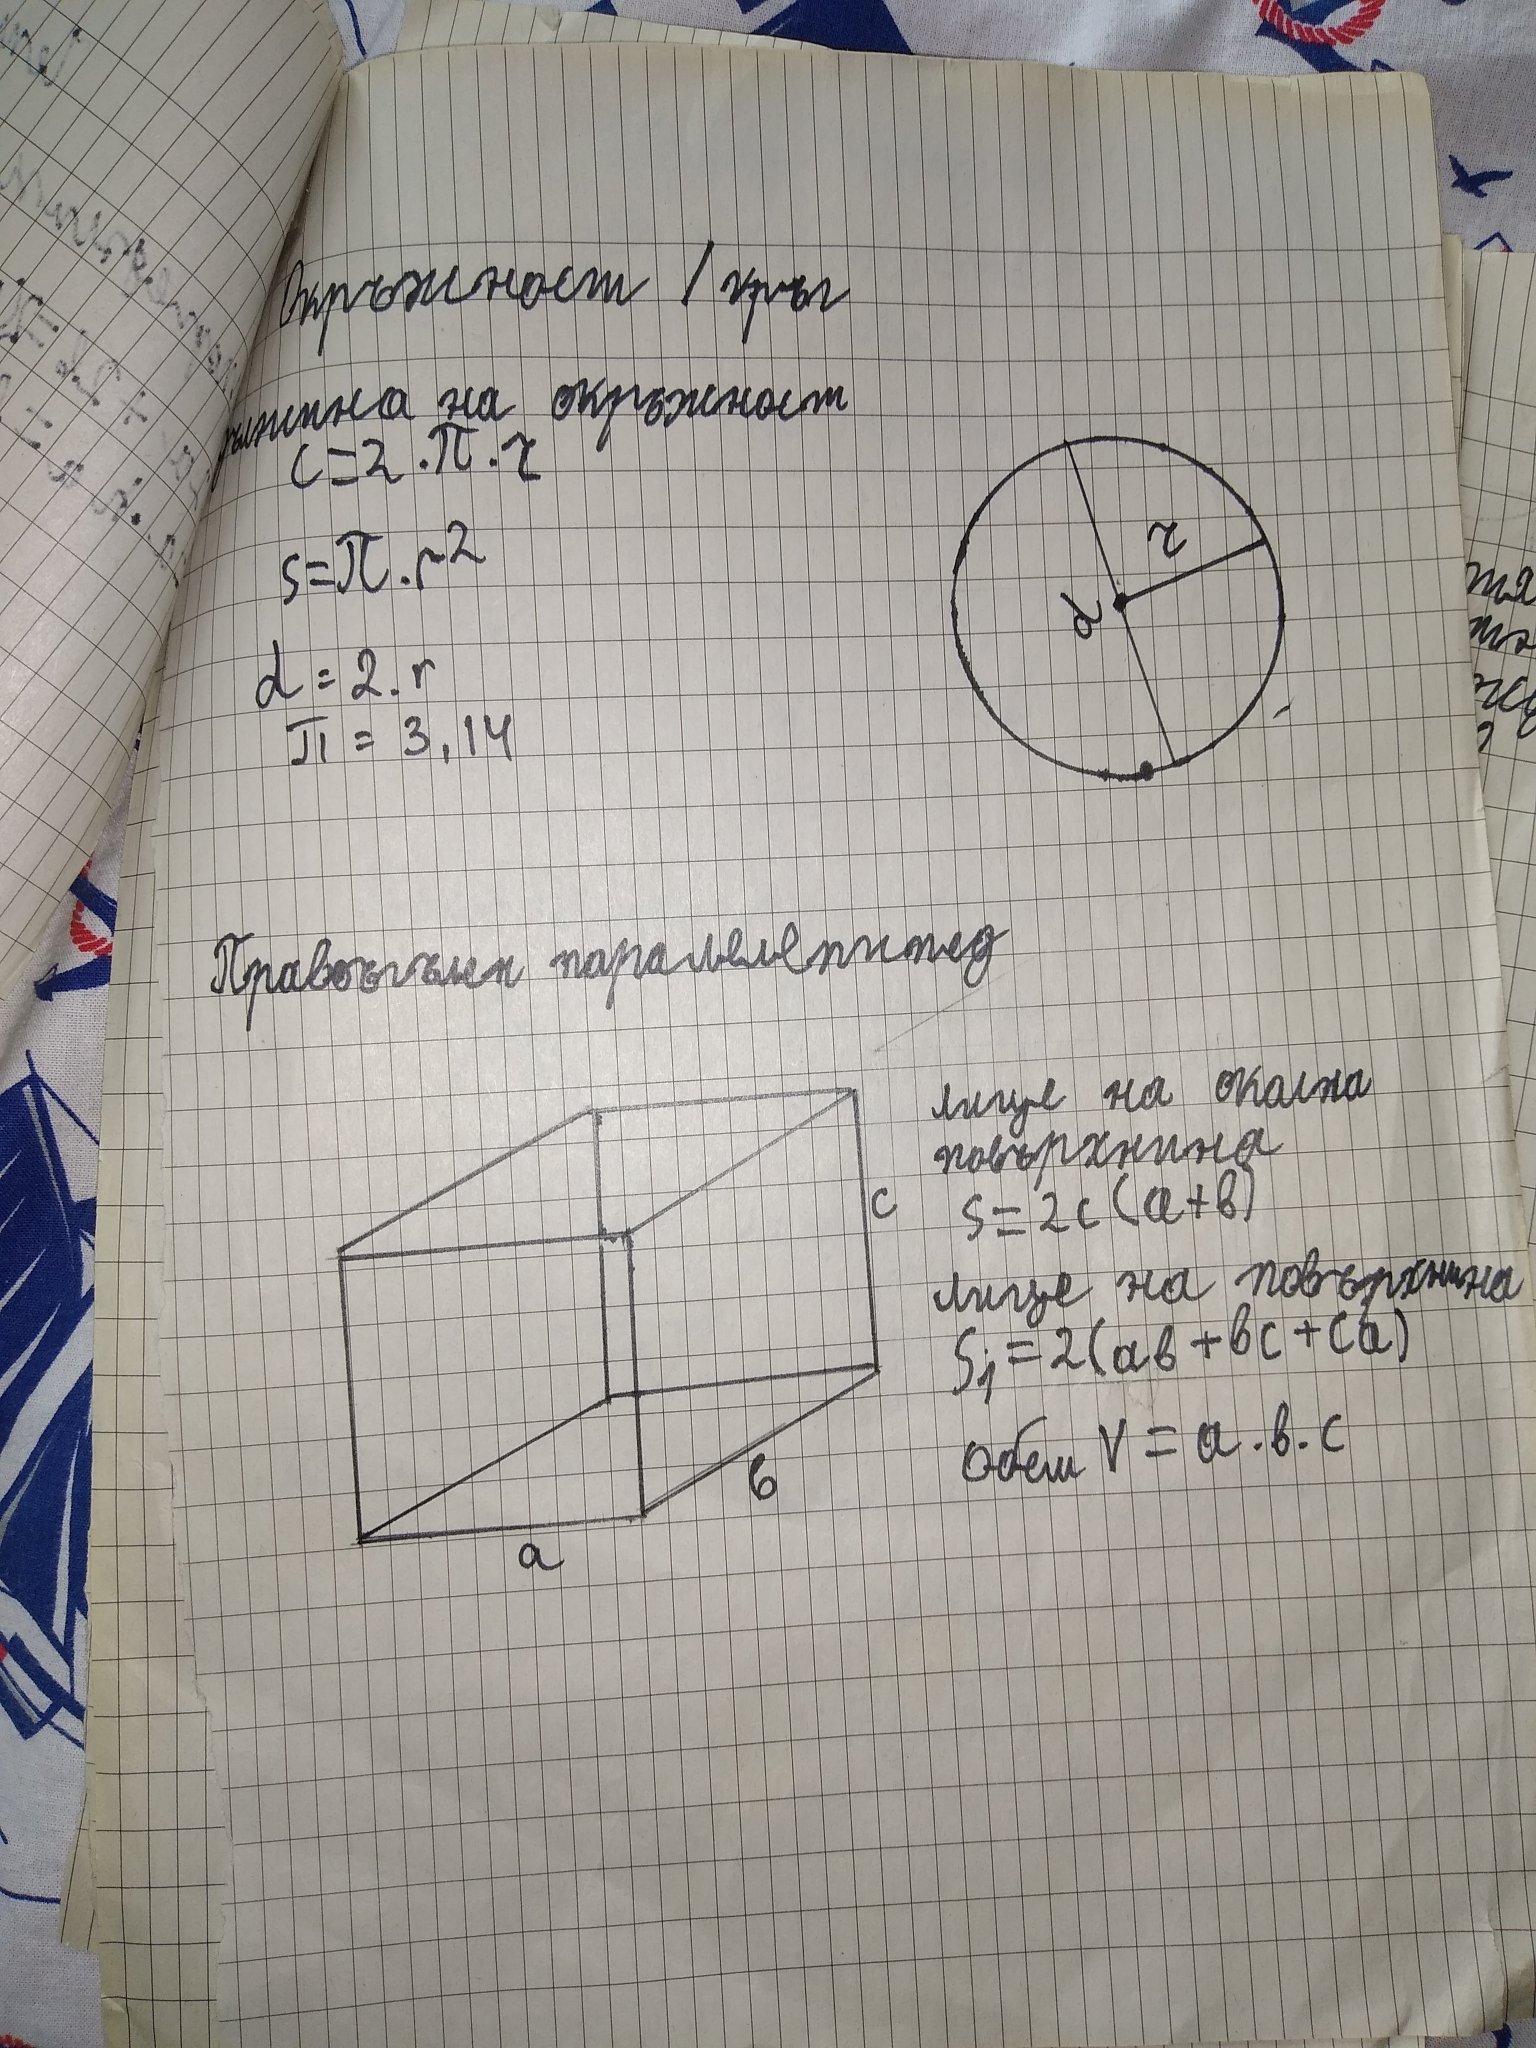 Окръжност / кръг
дължина на окръжност
C=2.π.r
S=π.r2
d=2.r
π=3,14
r
d
Правоъгълен паралелепипед
лице на околна
повърхнина
S=2c(a+b)
лице на повърхнина
S1=2(ab+bc+ca)
Обем V=a.b.c
c
b
a